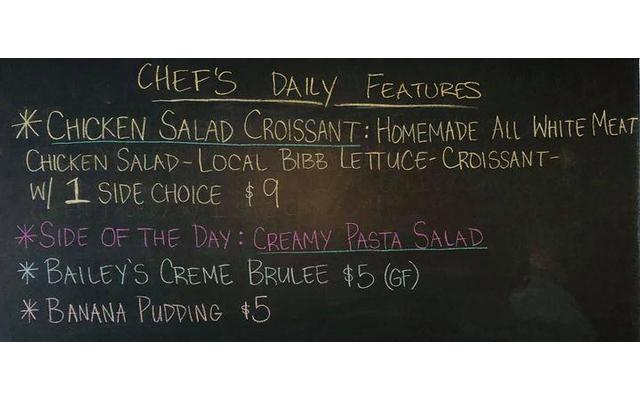 CHEF'S DAILY FEATURES
* CHICKEN SALAD CROISSANT: HOMEMADE ALL WHITE MEAT
CHICKEN SALAD-LOCAL BIBB LETTUCE-CROISSANT-
W/ 1 SIDE CHOICE $9
* SIDE OF THE DAY: CREAMY PASTA SALAD
* BAILEY'S CREME BRULEE $5 (GF)
* BANANA PUDDING $5